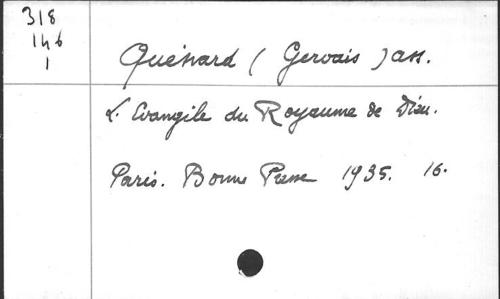 318
146
1
Quénard ( Gervais ) ass.
L'Evangile du Royaume de Dieu.
Paris. Bonne Presse 1935. 16.